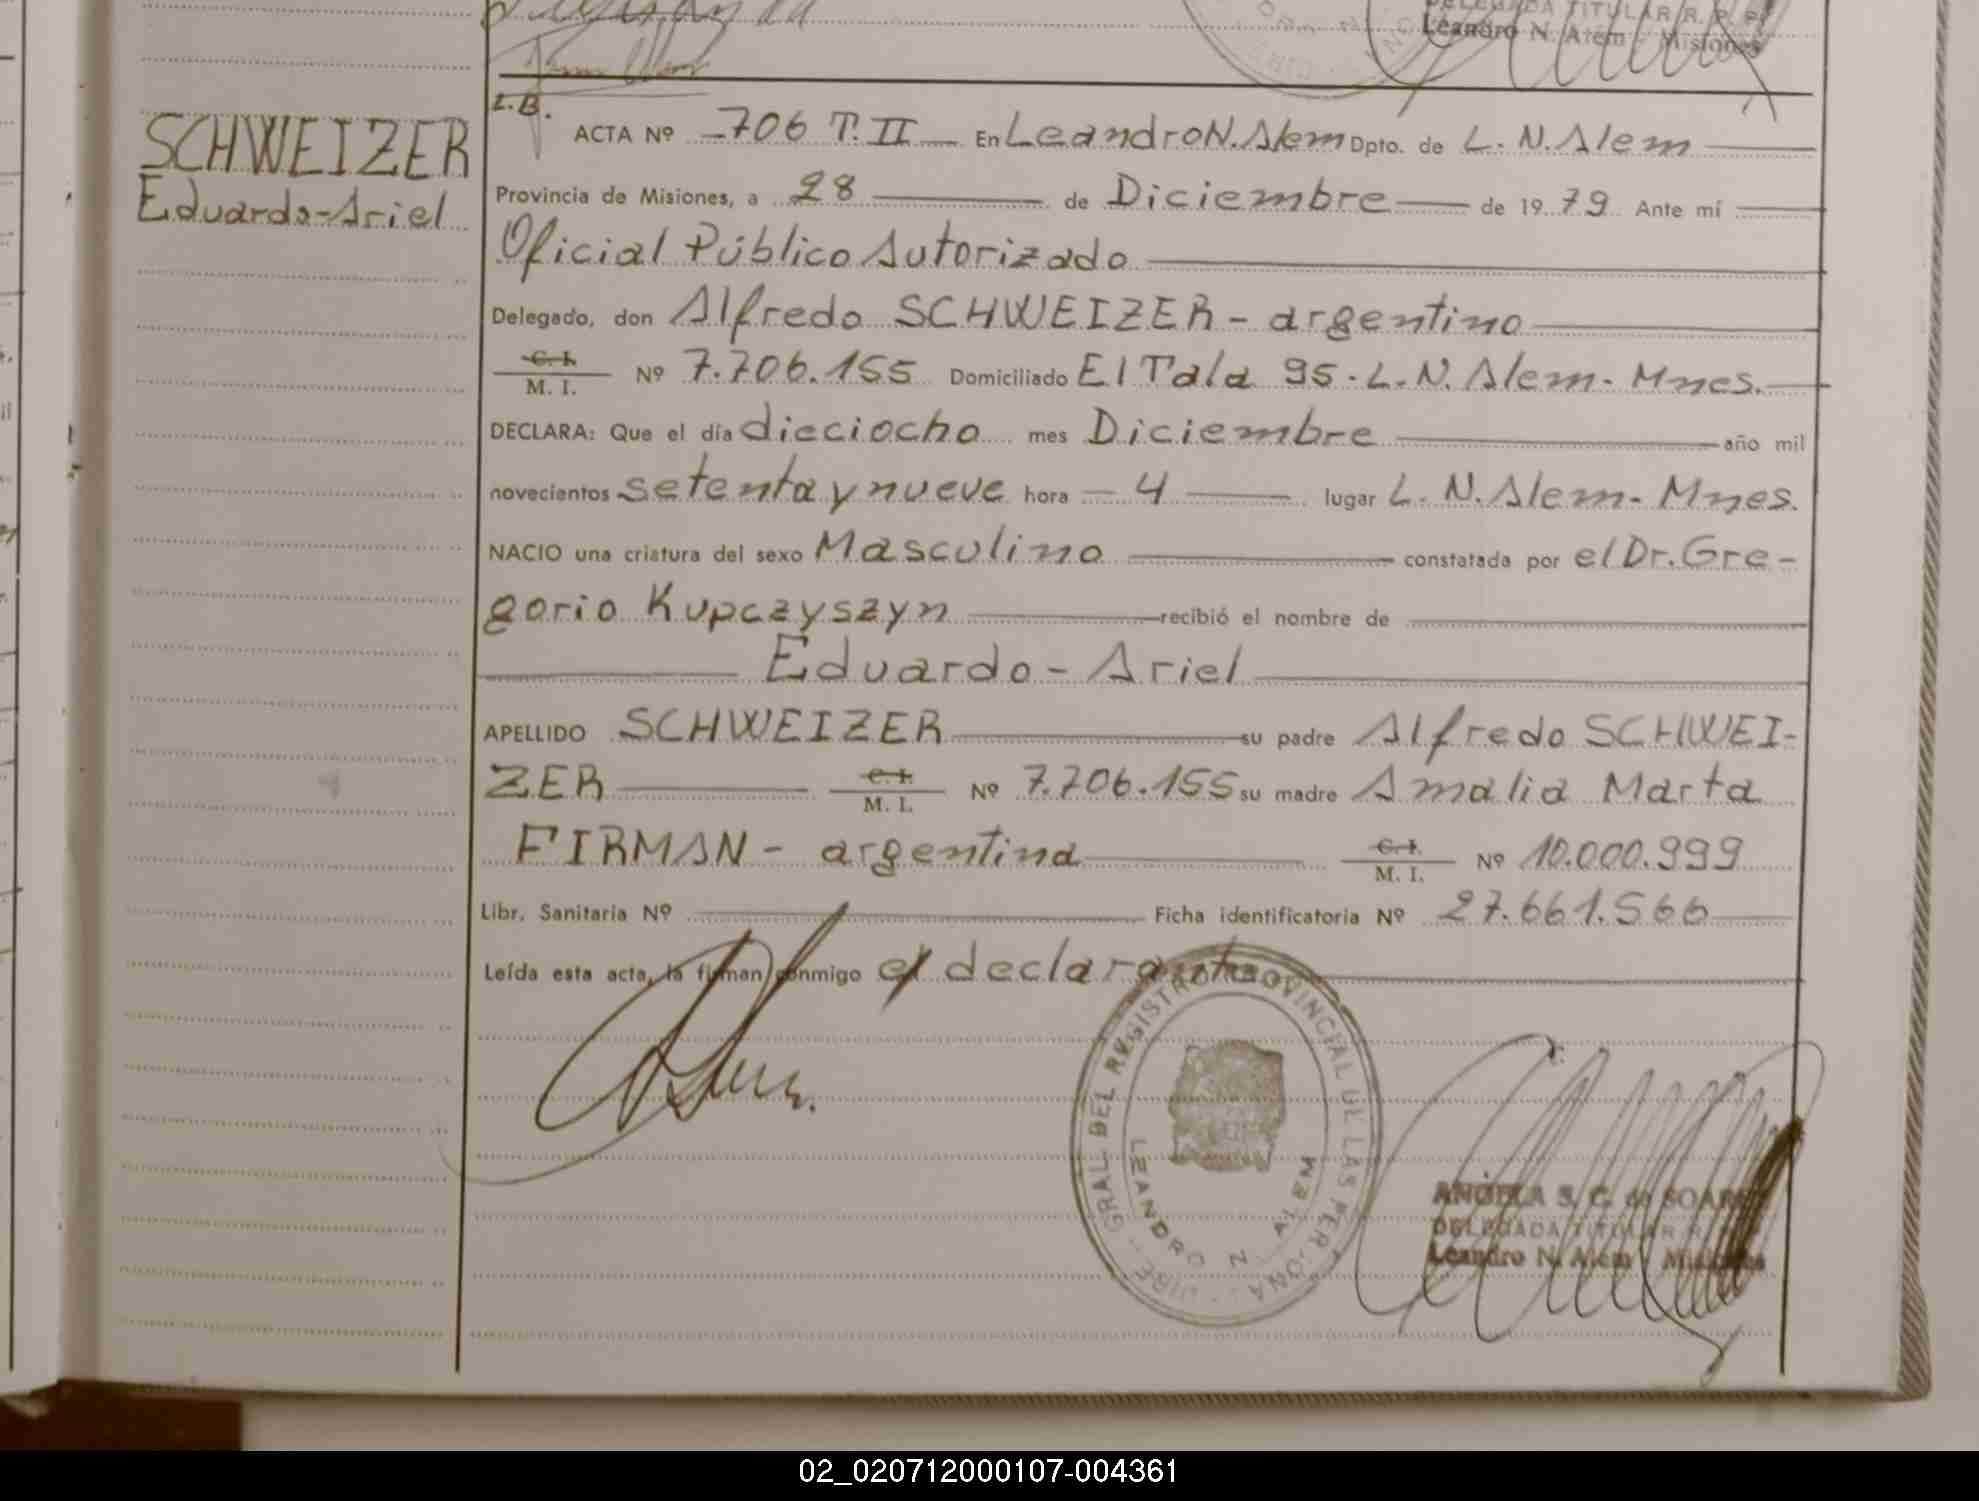 DELEGADA TITULAR R. P. P.
Leandro N. Alem - Misiones
SCHWEIZER
Eduardo-Ariel
L.B.
ACTA Nº -706 T. II — En Leandro N. Alem Dpto. de L. N. Alem
Provincia de Misiones, a 28 de Diciembre de 1979 Ante mí
Oficial Público Autorizado
Delegado, don Alfredo SCHWEIZER - argentino
C. I.
M. I. Nº 7.706.155 Domiciliado El Tala 95 - L. N. Alem - Mnes.
DECLARA: Que el día dieciocho mes Diciembre año mil
novecientos setenta y nueve hora - 4 lugar L. N. Alem - Mnes.
NACIO una criatura del sexo Masculino constatada por el Dr. Gre-
gorio Kupczyszyn recibió el nombre de
Eduardo - Ariel
APELLIDO SCHWEIZER su padre Alfredo SCHWEI-
ZER C. I. M. I. Nº 7.706.155 su madre Amalia Marta
FIRMAN - argentina C. I. M. I. Nº 10.000.999
Libr. Sanitaria Nº Ficha identificatoria Nº 27.661.566
Leída esta acta, la firman conmigo el declarante
GRAL DEL REGISTRO PROVINCIAL DE LAS PERSONA
LEANDRO N. ALEM
ANGELA S. C. de SOAREZ
DELEGADA TITULAR R. P. P.
Leandro N. Alem - Misiones
02_020712000107-004361